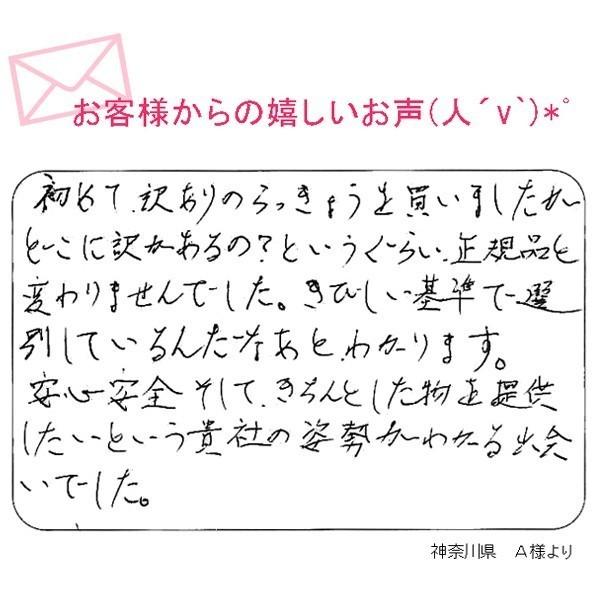 お客様からの嬉しいお声(人´v`)*゜
初めて、訳ありのらっきょうを買いましたが
どこに訳があるの?というぐらい、正規品と
変わりませんでした。きびしい基準で選
別しているんだなあと、わかります。
安心安全そして、きちんとした物を提供
したいという貴社の姿勢がわかる出会
いでした。
神奈川県 A様より